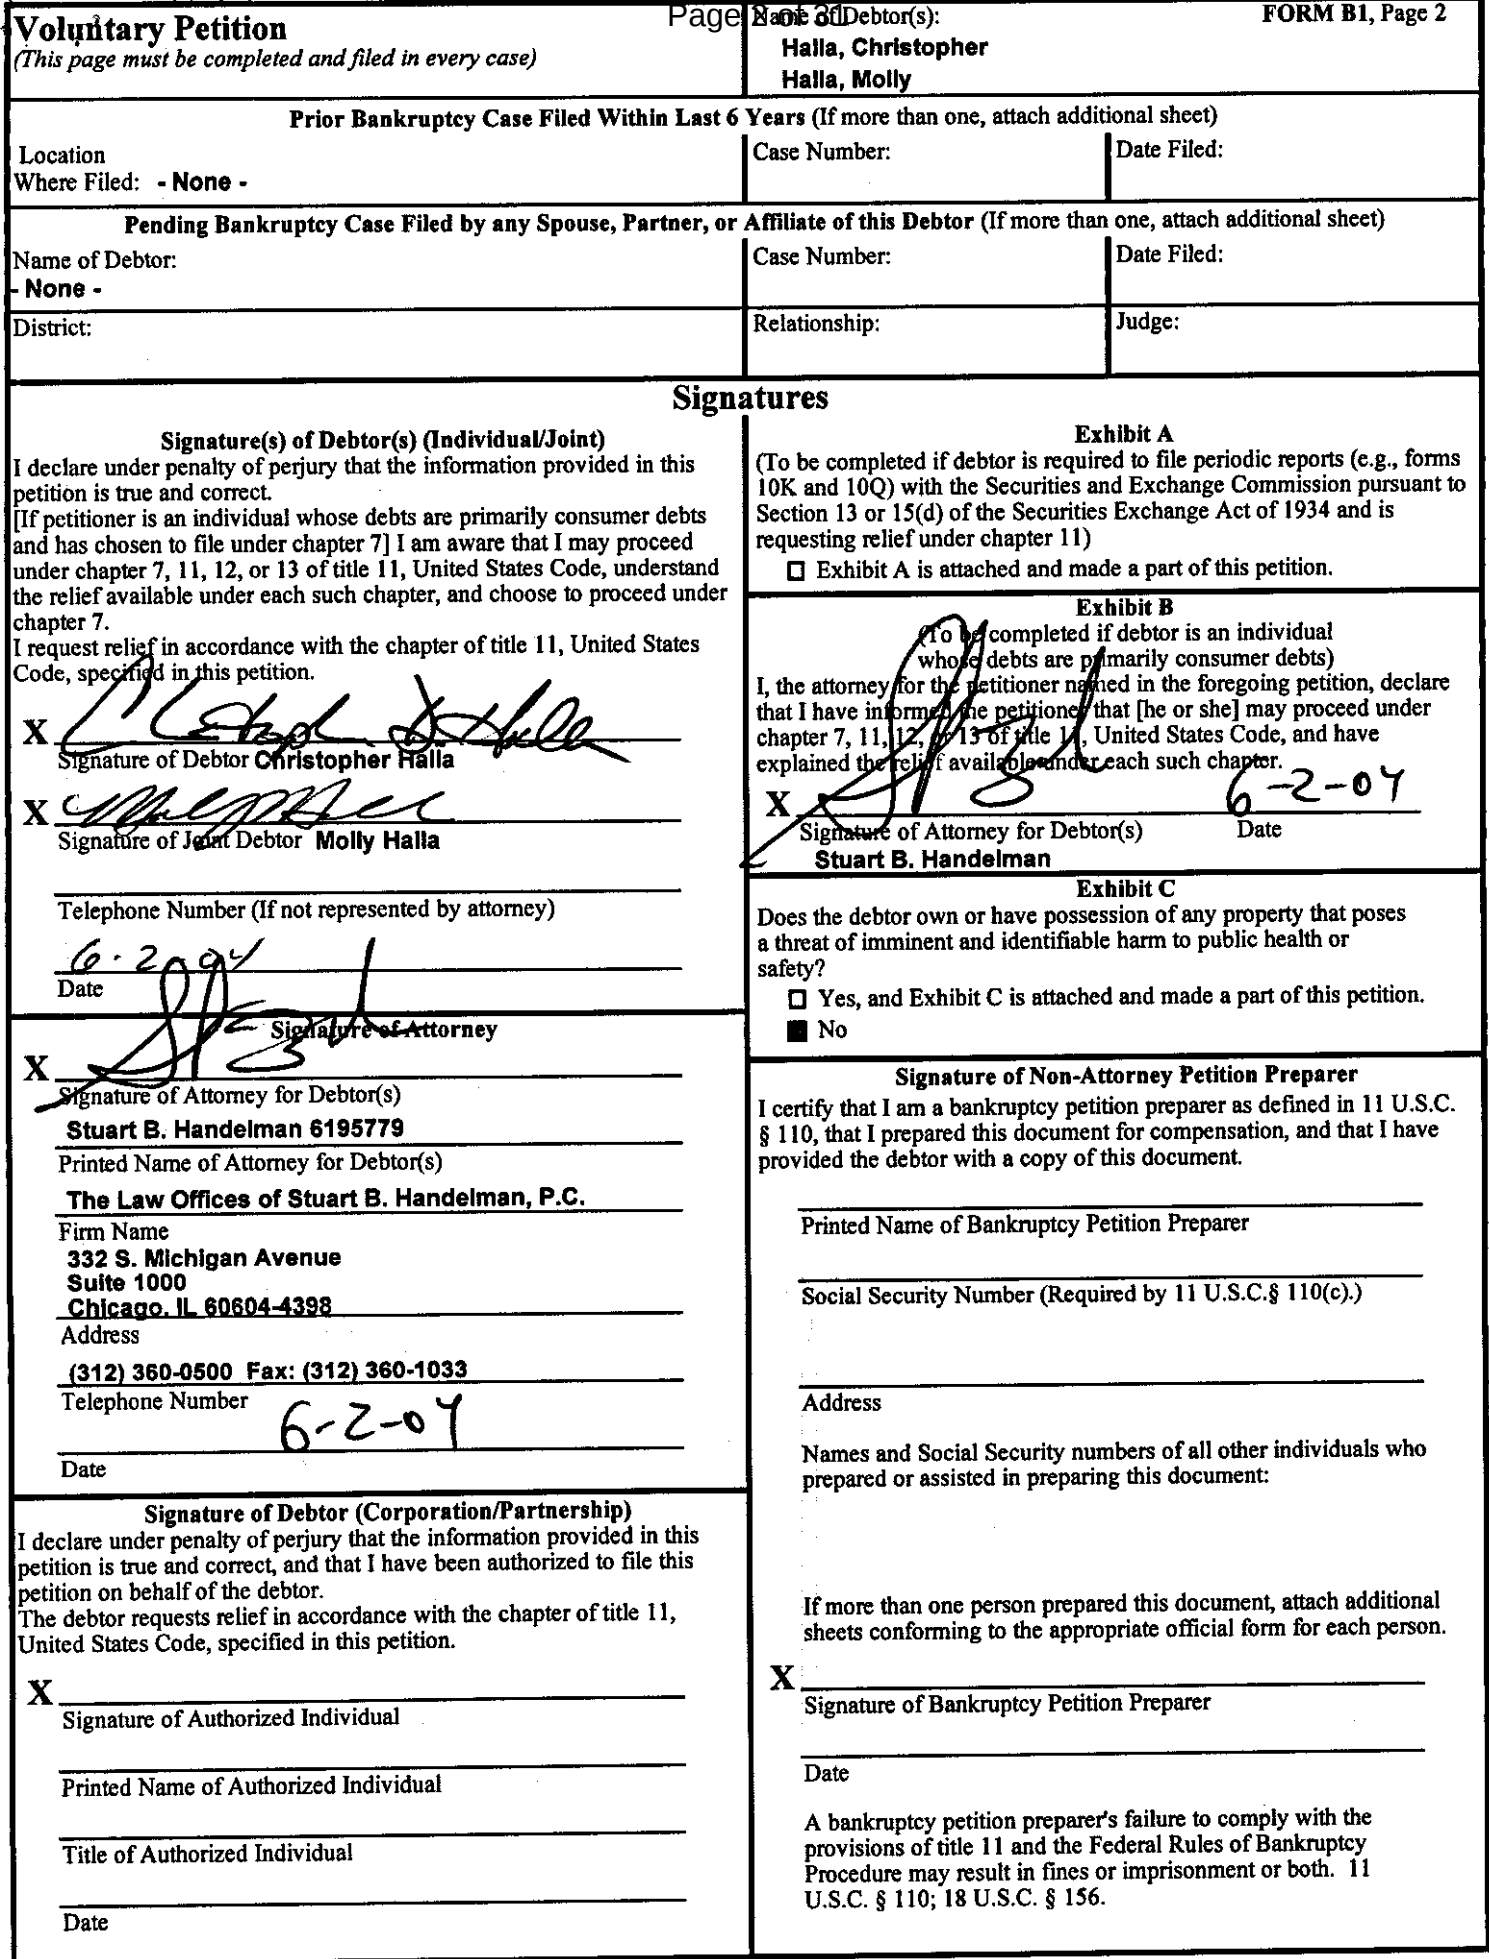 Page 2 of 31
Voluntary Petition
(This page must be completed and filed in every case)
Name of Debtor(s):
FORM B1, Page 2
Halla, Christopher
Halla, Molly
Prior Bankruptcy Case Filed Within Last 6 Years (If more than one, attach additional sheet)
Location
Where Filed: - None -
Case Number:
Date Filed:
Pending Bankruptcy Case Filed by any Spouse, Partner, or Affiliate of this Debtor (If more than one, attach additional sheet)
Name of Debtor:
- None -
Case Number:
Date Filed:
District:
Relationship:
Judge:
Signatures
Signature(s) of Debtor(s) (Individual/Joint)
I declare under penalty of perjury that the information provided in this
petition is true and correct.
[If petitioner is an individual whose debts are primarily consumer debts
and has chosen to file under chapter 7] I am aware that I may proceed
under chapter 7, 11, 12, or 13 of title 11, United States Code, understand
the relief available under each such chapter, and choose to proceed under
chapter 7.
I request relief in accordance with the chapter of title 11, United States
Code, specified in this petition.
X
Signature of Debtor Christopher Halla
X
Signature of Joint Debtor Molly Halla
Telephone Number (If not represented by attorney)
6-2-04
Date
Signature of Attorney
X
Signature of Attorney for Debtor(s)
Stuart B. Handelman 6195779
Printed Name of Attorney for Debtor(s)
The Law Offices of Stuart B. Handelman, P.C.
Firm Name
332 S. Michigan Avenue
Suite 1000
Chicago, IL 60604-4398
Address
(312) 360-0500 Fax: (312) 360-1033
Telephone Number
6-2-04
Date
Signature of Debtor (Corporation/Partnership)
I declare under penalty of perjury that the information provided in this
petition is true and correct, and that I have been authorized to file this
petition on behalf of the debtor.
The debtor requests relief in accordance with the chapter of title 11,
United States Code, specified in this petition.
X
Signature of Authorized Individual
Printed Name of Authorized Individual
Title of Authorized Individual
Date
Exhibit A
(To be completed if debtor is required to file periodic reports (e.g., forms
10K and 10Q) with the Securities and Exchange Commission pursuant to
Section 13 or 15(d) of the Securities Exchange Act of 1934 and is
requesting relief under chapter 11)
☐ Exhibit A is attached and made a part of this petition.
Exhibit B
(To be completed if debtor is an individual
whose debts are primarily consumer debts)
I, the attorney for the petitioner named in the foregoing petition, declare
that I have informed the petitioner that [he or she] may proceed under
chapter 7, 11, 12, or 13 of title 11, United States Code, and have
explained the relief available under each such chapter.
X
6-2-04
Signature of Attorney for Debtor(s)
Date
Stuart B. Handelman
Exhibit C
Does the debtor own or have possession of any property that poses
a threat of imminent and identifiable harm to public health or
safety?
☐ Yes, and Exhibit C is attached and made a part of this petition.
■ No
Signature of Non-Attorney Petition Preparer
I certify that I am a bankruptcy petition preparer as defined in 11 U.S.C.
§ 110, that I prepared this document for compensation, and that I have
provided the debtor with a copy of this document.
Printed Name of Bankruptcy Petition Preparer
Social Security Number (Required by 11 U.S.C.§ 110(c).)
Address
Names and Social Security numbers of all other individuals who
prepared or assisted in preparing this document:
If more than one person prepared this document, attach additional
sheets conforming to the appropriate official form for each person.
X
Signature of Bankruptcy Petition Preparer
Date
A bankruptcy petition preparer's failure to comply with the
provisions of title 11 and the Federal Rules of Bankruptcy
Procedure may result in fines or imprisonment or both. 11
U.S.C. § 110; 18 U.S.C. § 156.